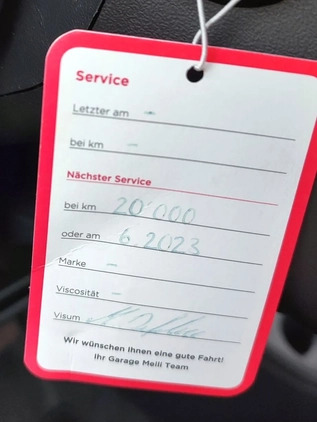 Service
Letzter am -
bei km -
Nächster Service
bei km 20'000
oder am 6 2023
Marke -
Viscosität -
Visum
Wir wünschen Ihnen eine gute Fahrt!
Ihr Garage Meili Team